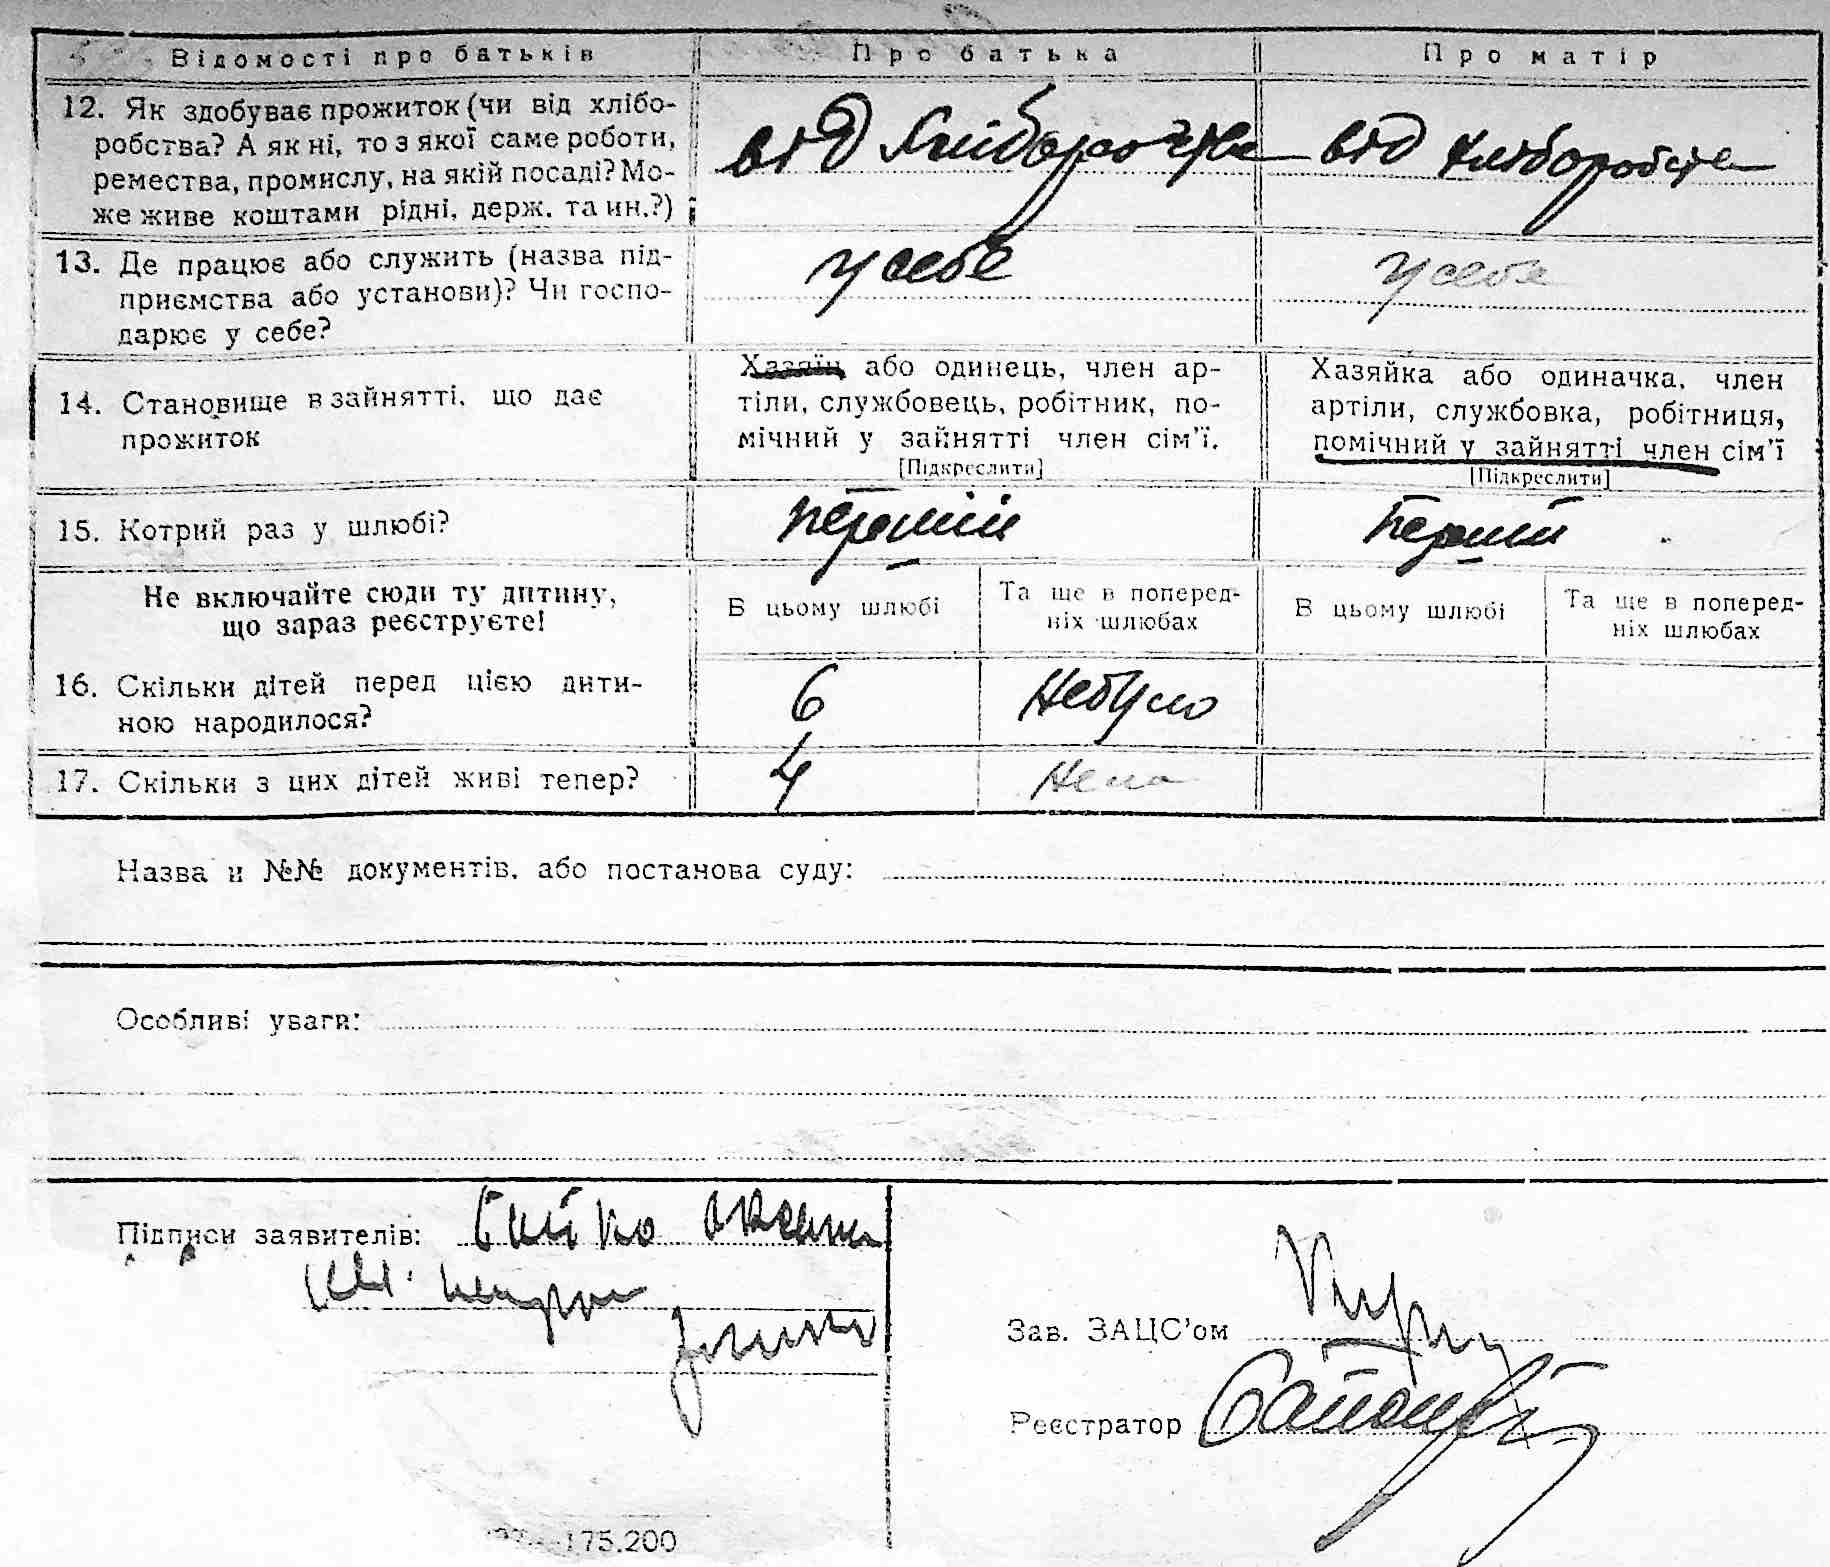 Відомості про батьків Про батька Про матір
12. Як здобуває прожиток (чи від хлібо-
робства? А як ні, то з якої саме роботи,
ремества, промислу, на якій посаді? Мо-
же живе коштами рідні, держ. та ин.?)
від від хліборобства
13. Де працює або служить (назва під-
приємства або установи)? Чи госпо-
дарює у себе?
у себе у себе
14. Становище в зайнятті, що дає
прожиток
Хазяїн або одинець, член ар-
тіли, службовець, робітник, по-
мічний у зайнятті член сім'ї.
[Підкреслити]
Хазяйка або одиначка, член
артіли, службовка, робітниця,
помічний у зайнятті член сім'ї
[Підкреслити]
15. Котрий раз у шлюбі? перший перший
Не включайте сюди ту дитину,
що зараз реєструєте!
В цьому шлюбі
Та ще в поперед-
ніх шлюбах
В цьому шлюбі
Та ще в поперед-
ніх шлюбах
16. Скільки дітей перед цією дити-
ною народилося?
6 небуло
17. Скільки з цих дітей живі тепер? 4 нема
Назва и №№ документів, або постанова суду:
Особливі уваги:
Підписи заявителів:
Зав. ЗАЦС'ом
Реєстратор
175.200